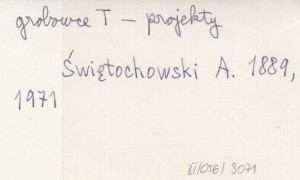 grobowce T – projekty
Świętochowski A. 1889,
1971